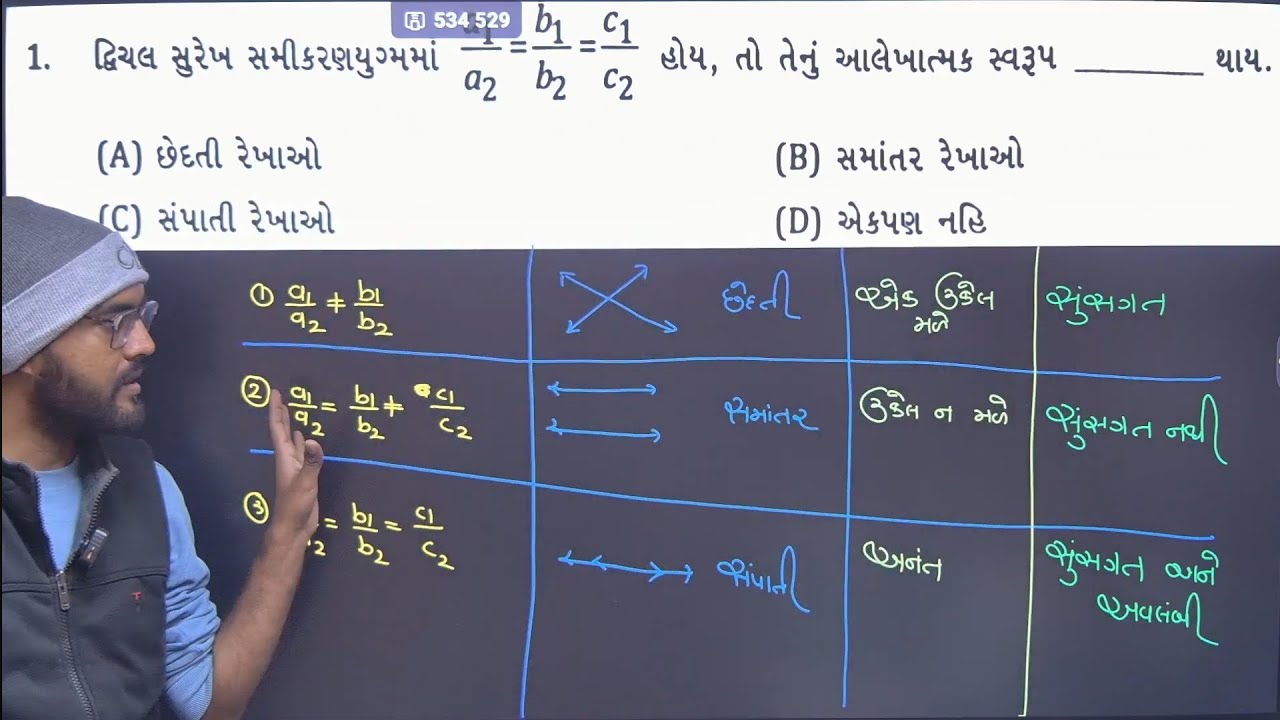 534 529
1. દ્વિચલ સુરેખ સમીકરણયુગ્મમાં a₁/a₂ = b₁/b₂ = c₁/c₂ હોય, તો તેનું આલેખાત્મક સ્વરૂપ ________ થાય.
(A) છેદતી રેખાઓ (B) સમાંતર રેખાઓ
(C) સંપાતી રેખાઓ (D) એકપણ નહિ
① a₁/a₂ ≠ b₁/b₂ છેદતી એક ઉકેલ મળે સુસંગત
② a₁/a₂ = b₁/b₂ ≠ c₁/c₂ સમાંતર ઉકેલ ન મળે સુસંગત નથી
③ = b₁/b₂ = c₁/c₂ સંપાતી અનંત સુસંગત અને
અવલંબી